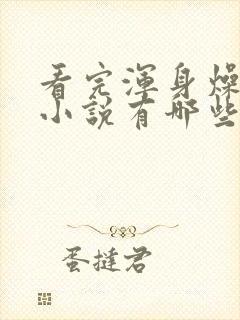 看完渾身燥
小說有哪些
蛋撻君